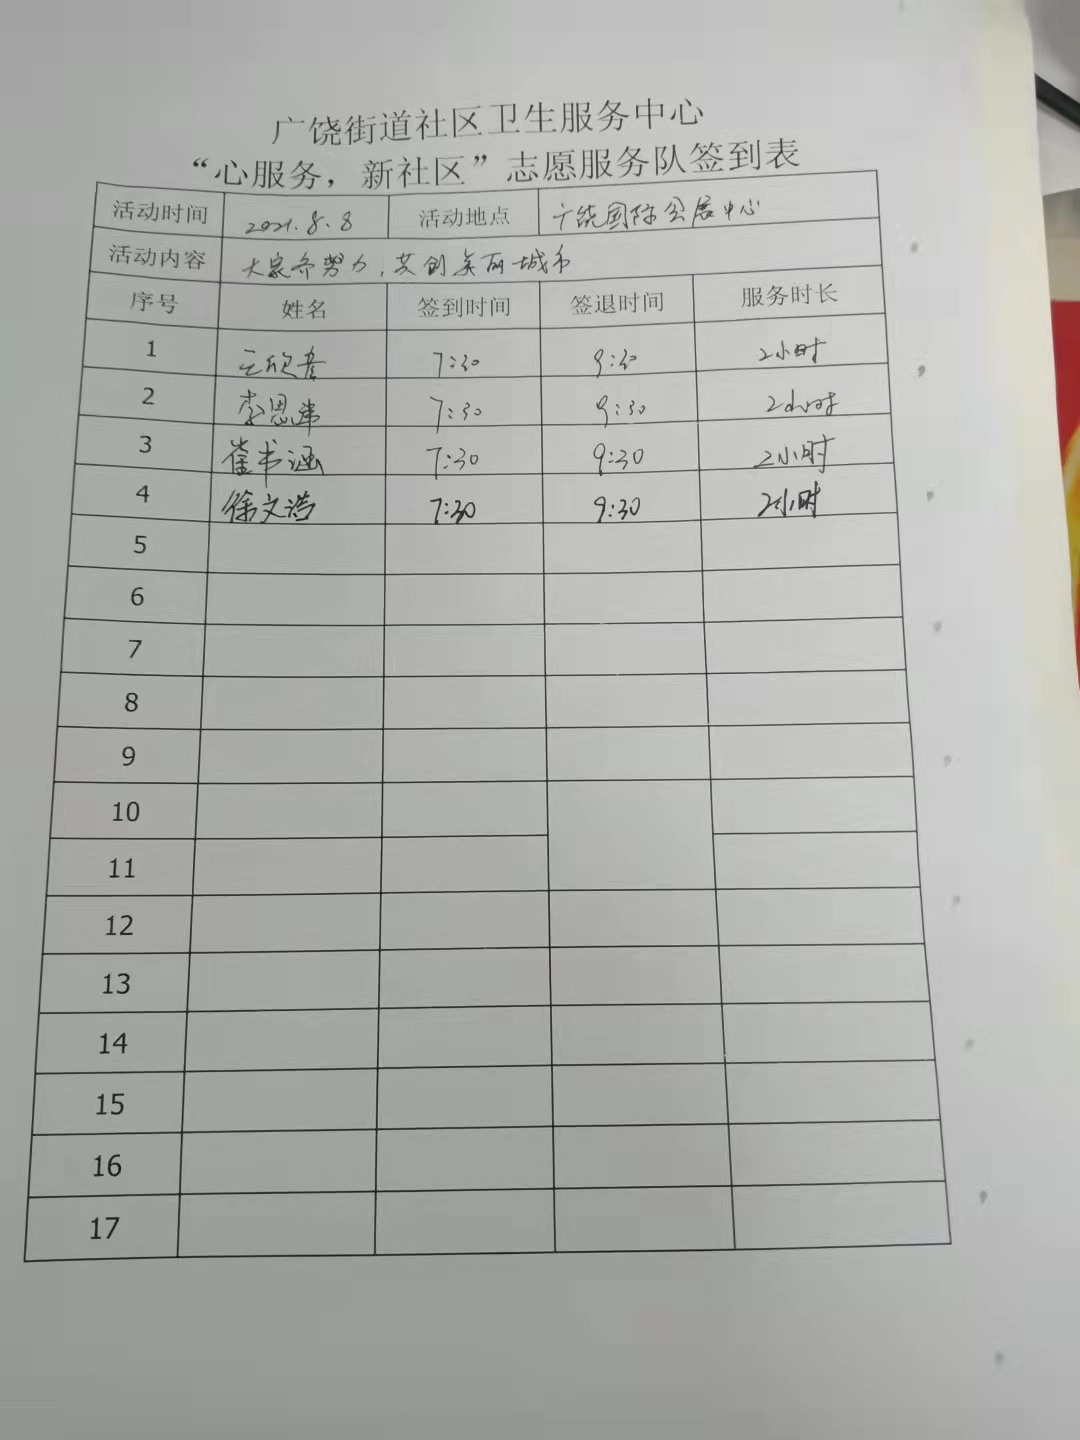 广饶街道社区卫生服务中心
“心服务，新社区”志愿服务队签到表
活动时间 2021.8.8 活动地点 广饶国际会展中心
活动内容 大家齐努力，共创美丽城市
序号 姓名 签到时间 签退时间 服务时长
1 王欣彦 7:30 9:30 2小时
2 李思 7:30 9:30 2小时
3 崔书涵 7:30 9:30 2小时
4 徐文浩 7:30 9:30 2小时
5
6
7
8
9
10
11
12
13
14
15
16
17